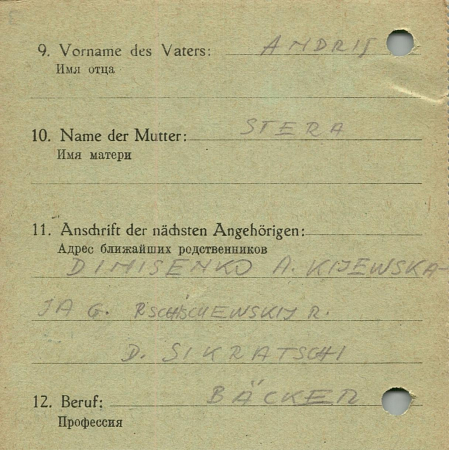 9. Vorname des Vaters: ANDRIJ
Имя отца
10. Name der Mutter: STERA
Имя матери
11. Anschrift der nächsten Angehörigen:
Адрес ближайших родственников
DIMISENKO A. KIJEWSKA-
JA G. RSCHISCHEWSKIJ R.
D. SIKRATSCHI
12. Beruf: BÄCKER
Профессия